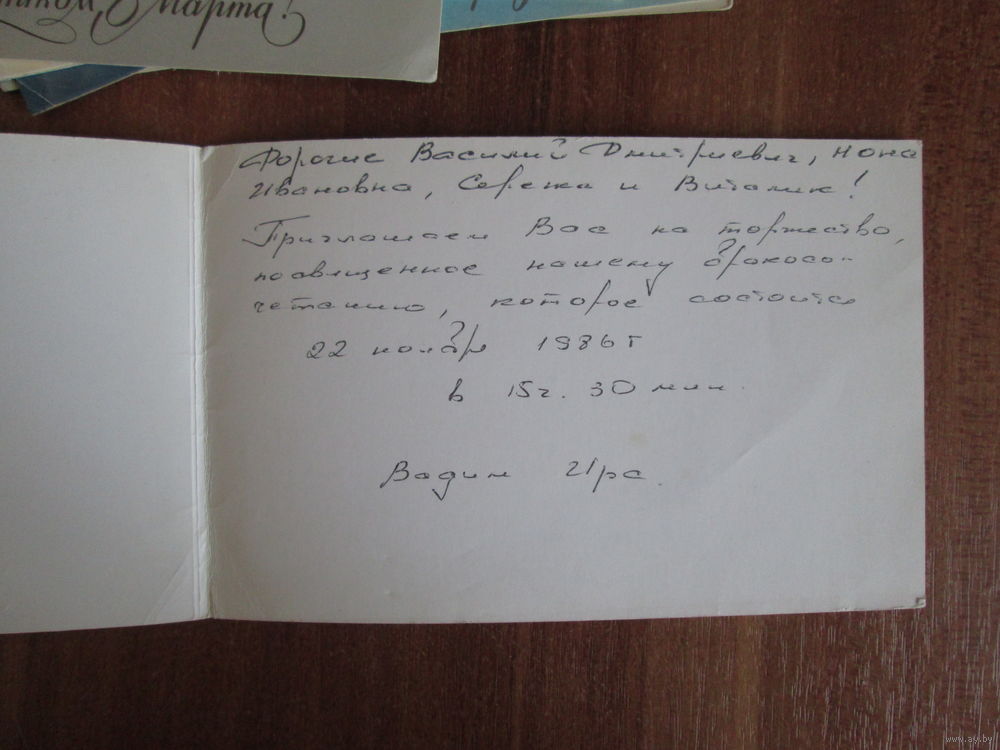 8 Марта!
Дорогие Василий Дмитриевич, Нона
Ивановна, Сережа и Виталик!
Приглашаем Вас на торжество,
посвященное нашему бракосо-
четанию, которое состоится
22 ноября 1986 г
в 15 ч. 30 мин.
Вадим Ира.
www.ay.by